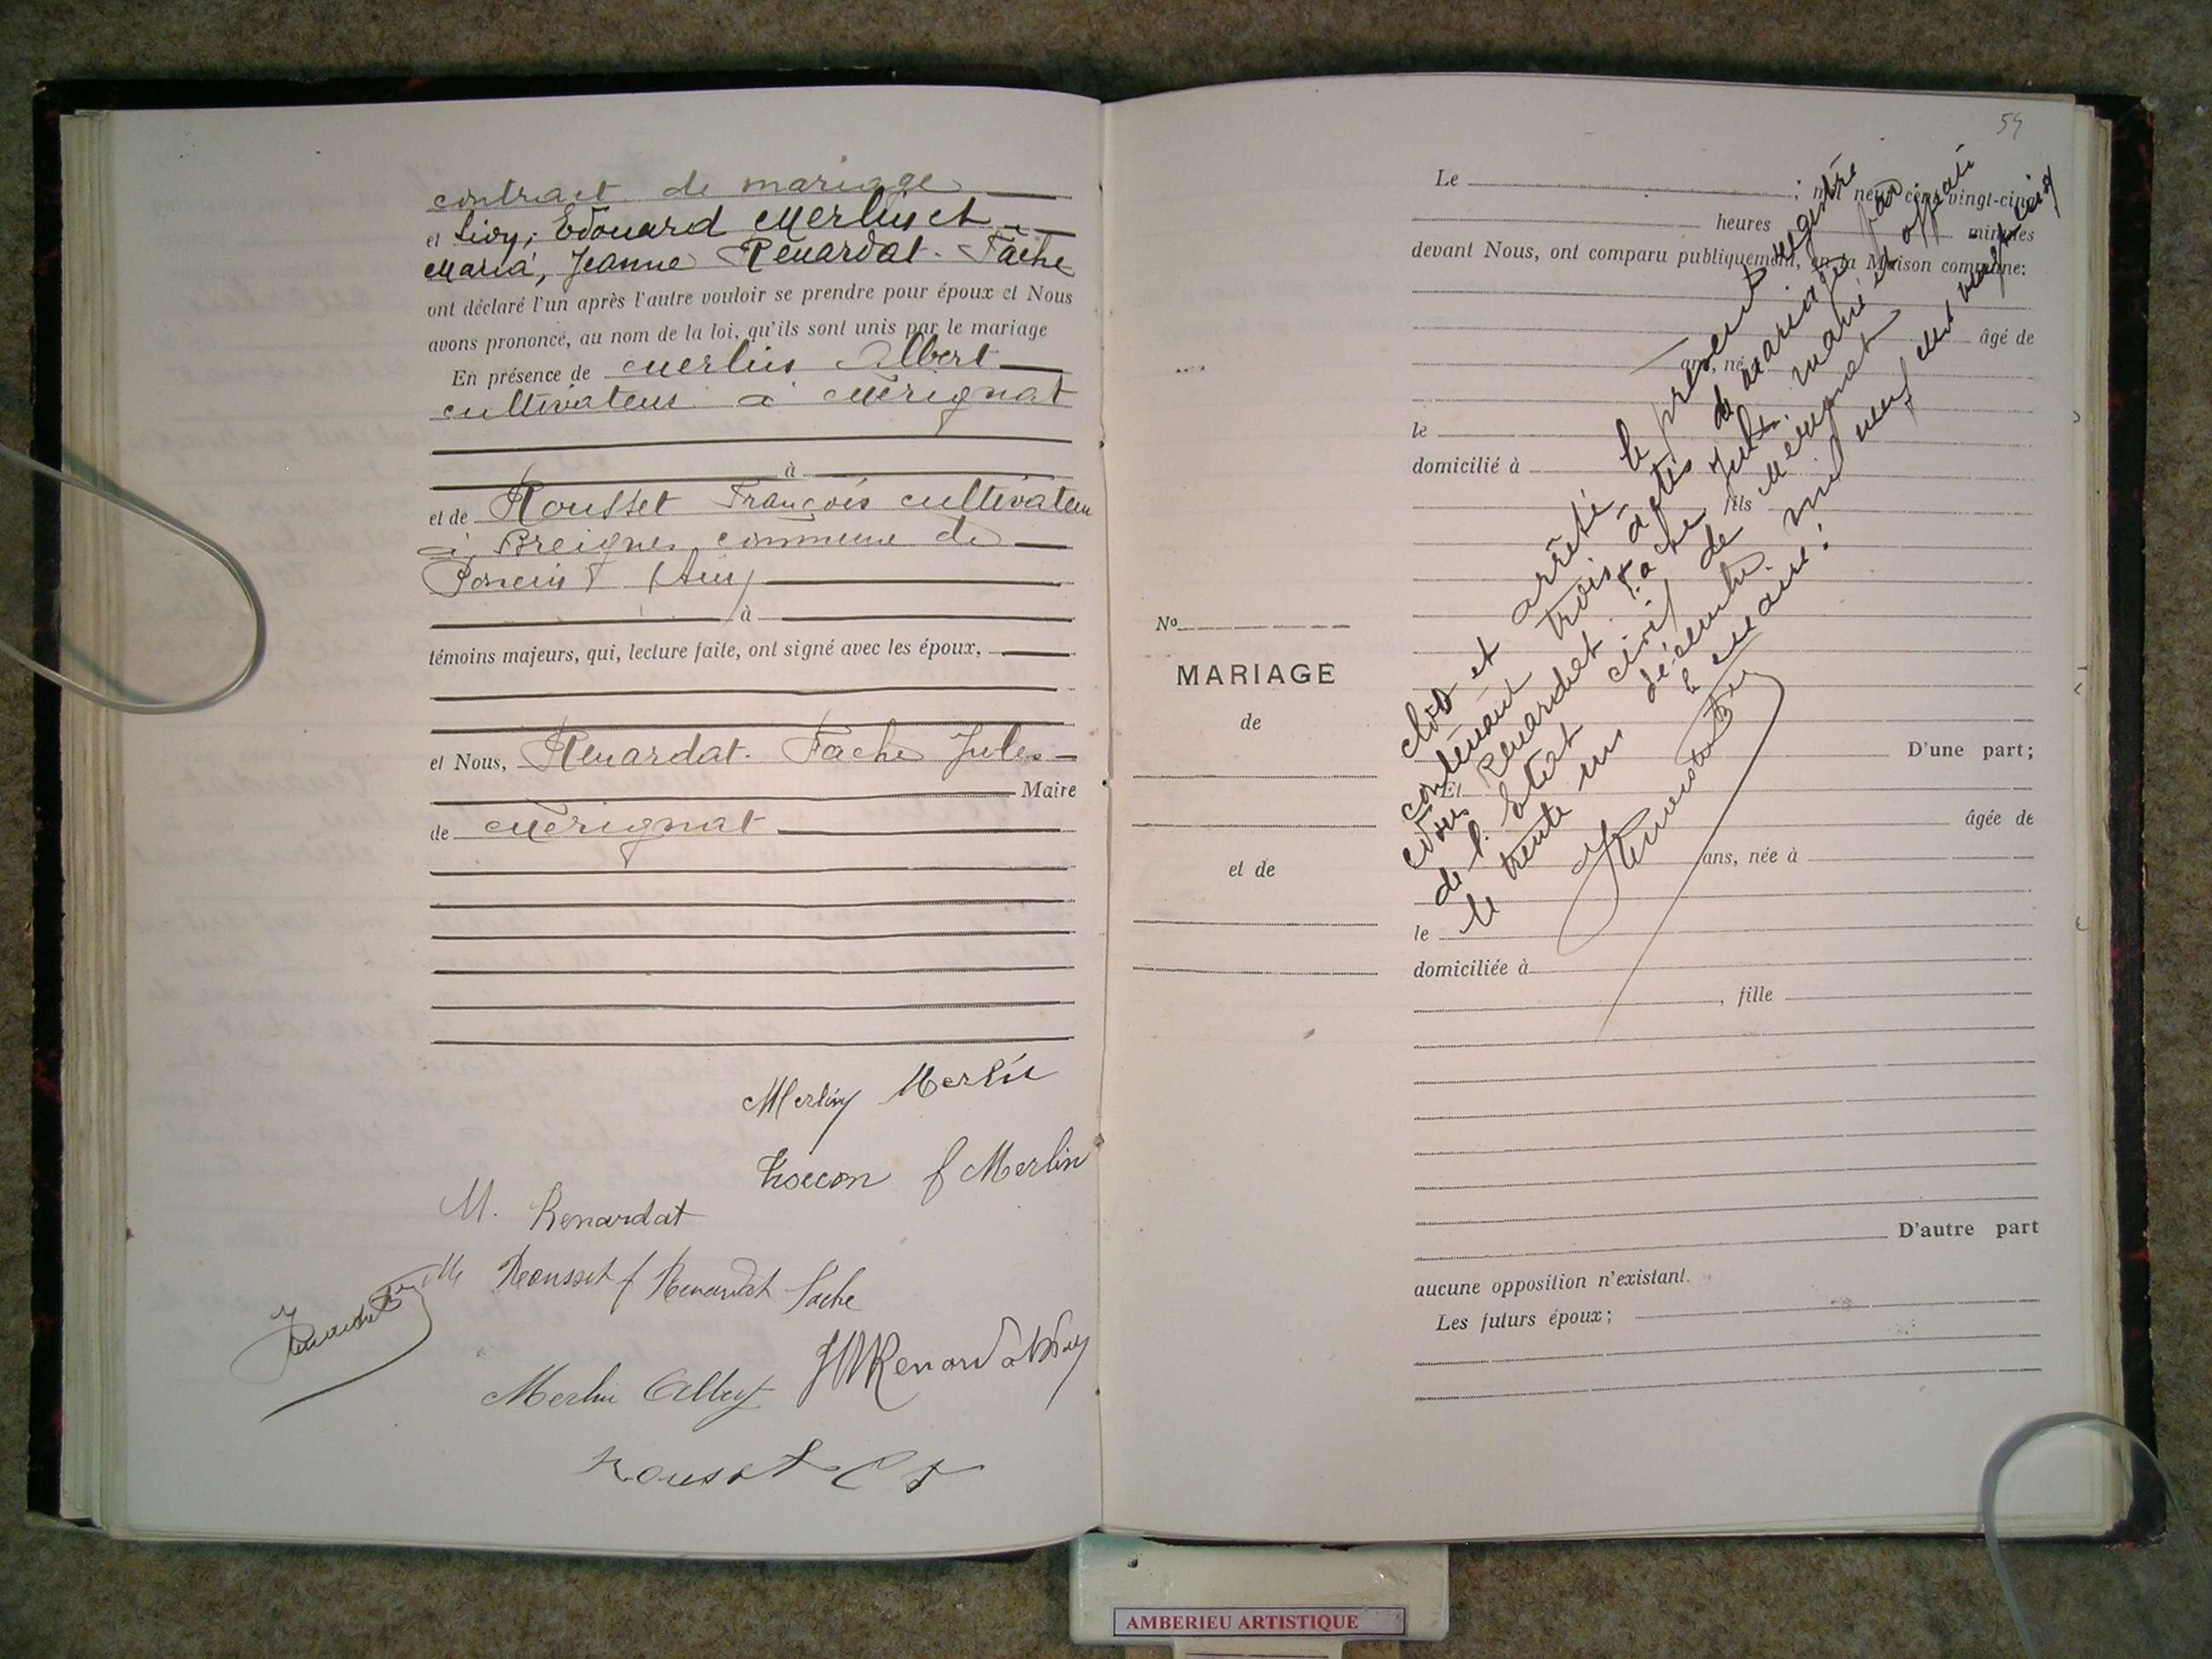 contrat de mariage
et Livy, Edouard Merlin et
Maria, Jeanne Renardat-Fache
ont déclaré l'un après l'autre vouloir se prendre pour époux et Nous
avons prononcé, au nom de la loi, qu'ils sont unis par le mariage
En présence de Merlin Albert
cultivateur à Mérignat
à
et de Rousset François cultivateur
à Breignes commune de
Poncin (Ain)
à
témoins majeurs, qui, lecture faite, ont signé avec les époux,
et Nous, Renardat-Fache Jules
Maire
de Mérignat
Merlin Merlin
f Merlin
M. Renardat
M Rousset f Renardat Fache
Merlin Albert
Rousset
54
Le ; mil neuf cent vingt-cinq
heures minutes
devant Nous, ont comparu publiquement, en la Maison commune:
âgé de
ans, né
le
domicilié à
fils
No
MARIAGE
de
D'une part;
Et
âgée de
et de
ans, née à
le
domiciliée à
, fille
D'autre part
aucune opposition n'existant.
Les futurs époux;
clos et arrêté le présent registre
contenant trois actes de mariage par
Nous Renardat Fache Jules maire et officier
de l'état civil de Mérignat
le trente un décembre mil neuf cent vingt cinq
le maire:
AMBERIEU ARTISTIQUE